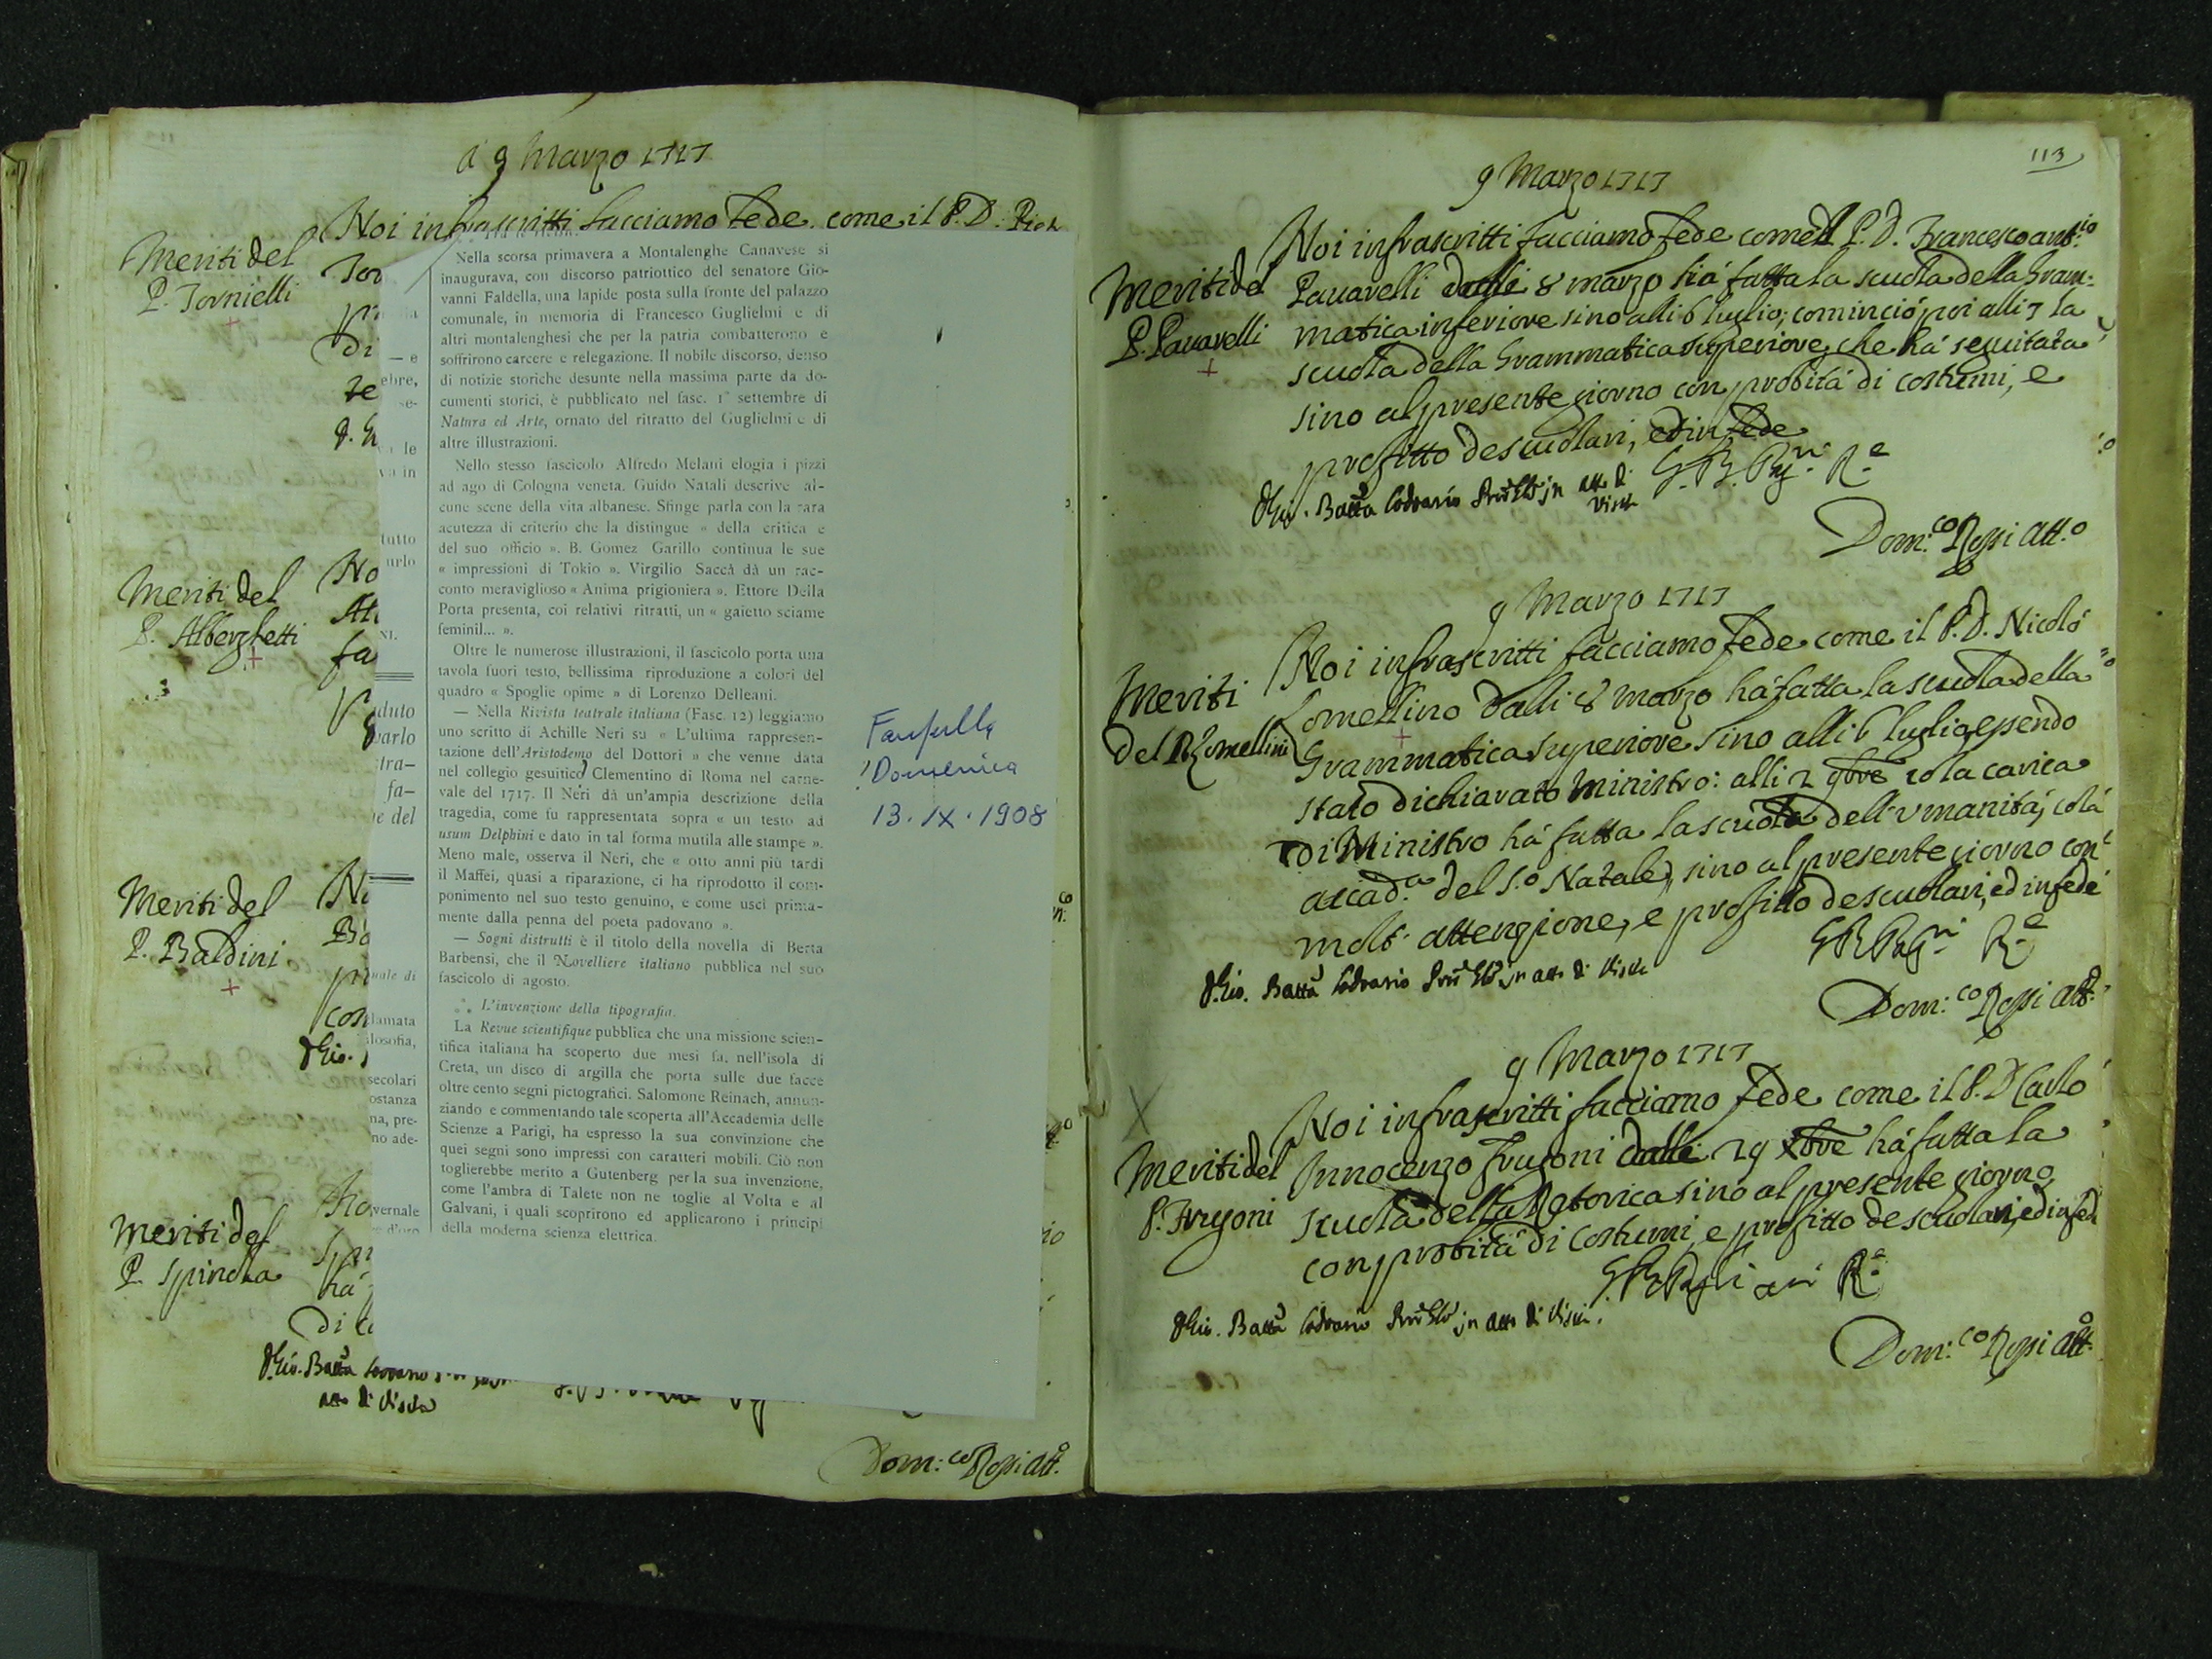 a 9 Marzo 1717
Noi infrascritti facciamo fede come il P. D.
Meriti del
P. Tornielli
Meriti del
P. Alberghetti
Meriti del
P. Baldini
Meriti del
P. Spinola
atto di Visita
Dom:co Rossi Att.o
Nella scorsa primavera a Montalenghe Canavese si
inaugurava, con discorso patriottico del senatore Gio-
vanni Faldella, una lapide posta sulla fronte del palazzo
comunale, in memoria di Francesco Guglielmi e di
altri montalenghesi che per la patria combatterono e
soffrirono carcere e relegazione. Il nobile discorso, denso
di notizie storiche desunte nella massima parte da do-
cumenti storici, è pubblicato nel fasc. 1° settembre di
Natura ed Arte, ornato del ritratto del Guglielmi e di
altre illustrazioni.
Nello stesso fascicolo Alfredo Melani elogia i pizzi
ad ago di Cologna veneta. Guido Natali descrive al-
cune scene della vita albanese. Sfinge parla con la rara
acutezza di criterio che la distingue « della critica e
del suo officio ». B. Gomez Garillo continua le sue
« impressioni di Tokio ». Virgilio Saccà dà un rac-
conto meraviglioso « Anima prigioniera ». Ettore Della
Porta presenta, coi relativi ritratti, un « gaietto sciame
feminil... ».
Oltre le numerose illustrazioni, il fascicolo porta una
tavola fuori testo, bellissima riproduzione a colori del
quadro « Spoglie opime » di Lorenzo Delleani.
— Nella Rivista teatrale italiana (Fasc. 12) leggiamo
uno scritto di Achille Neri su « L'ultima rappresen-
tazione dell'Aristodemo del Dottori » che venne data
nel collegio gesuitico Clementino di Roma nel carne-
vale del 1717. Il Neri dà un'ampia descrizione della
tragedia, come fu rappresentata sopra « un testo ad
usum Delphini e dato in tal forma mutila alle stampe ».
Meno male, osserva il Neri, che « otto anni più tardi
il Maffei, quasi a riparazione, ci ha riprodotto il com-
ponimento nel suo testo genuino, e come uscì prima-
mente dalla penna del poeta padovano ».
— Sogni distrutti è il titolo della novella di Berta
Barbensi, che il Novelliere italiano pubblica nel suo
fascicolo di agosto.
L'invenzione della tipografia.
La Revue scientifique pubblica che una missione scien-
tifica italiana ha scoperto due mesi fa, nell'isola di
Creta, un disco di argilla che porta sulle due facce
oltre cento segni pictografici. Salomone Reinach, annun-
ziando e commentando tale scoperta all'Accademia delle
Scienze a Parigi, ha espresso la sua convinzione che
quei segni sono impressi con caratteri mobili. Ciò non
toglierebbe merito a Gutenberg per la sua invenzione,
come l'ambra di Talete non ne toglie al Volta e al
Galvani, i quali scoprirono ed applicarono i principi
della moderna scienza elettrica.
Fanfulla
Domenica
13.IX.1908
113
9 Marzo 1717
Noi infrascritti facciamo fede come il P. D. Francesco ant.io
Meriti del
P. Pavarelli
Pavarelli dalli 8 marzo hà fatta la scuola della Gram:
matica inferiore sino alli 6 luglio; cominciò poi alli 7 la
scuola della Grammatica superiore, che hà seguitata
sino al presente giorno con probità di costumi, e
profitto de scuolari, ed in fede
Dom:co Rossi Att.o
9 Marzo 1717
Noi infrascritti facciamo fede come il P. D. Nicolò
Meriti
del P. Lomellini
Lomellino dalli 8 marzo hà fatta la scuola della
Grammatica superiore sino alli 6 luglio, essendo
stato dichiarato Ministro: alli 2 9bre cola carica
di Ministro hà fatta la scuola dell'umanità, colà
accad.a del S.o Natale, sino al presente giorno con
molt. attenzione, e profitto de scuolari, ed in fede
Dom:co Rossi Att.
9 Marzo 1717
Noi infrascritti facciamo fede come il P. D Carlo
Meriti del
P. Frugoni
Innocenzo Frugoni dalli 29 Xbre hà fatta la
scuola della Retorica sino al presente giorno
con probità di costumi, e profitto de scuolari, ed in fed
Dom:co Rossi Att.